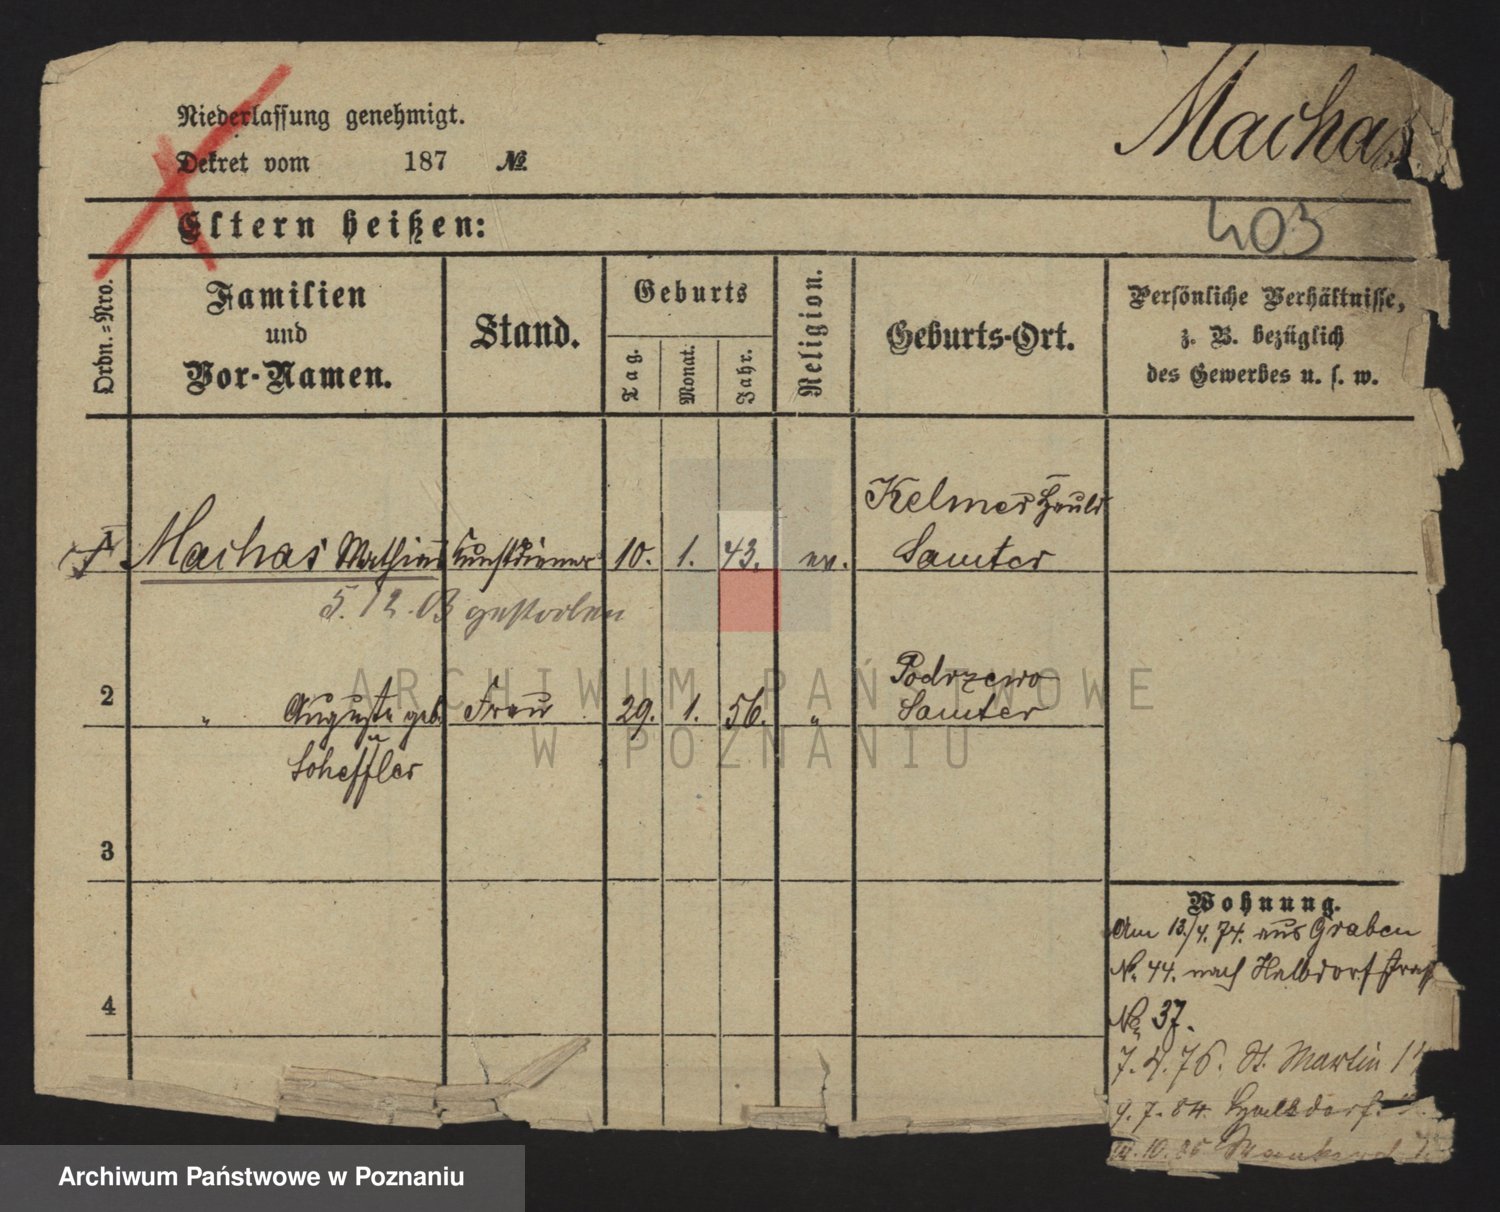 Niederlassung genehmigt.
Dekret vom 187 №
Machas
Eltern heißen:
403
Ordn.=Nro.
Familien
und
Vor-Namen.
Stand.
Geburts
Tag.
Monat.
Jahr.
Religion.
Geburts-Ort.
Persönliche Verhältnisse,
z. B. bezüglich
des Gewerbes u. s. w.
Kelmer
1 Machas Mathias 10. 1. 43. ev. Samter
5. 12. 03 gestorben
Podrzewo
2 " Auguste geb. Frau 29. 1. 56. " Samter
Scheffler
3
4
Wohnung.
Am 13/4. 74. aus Graben
№ 44. nach Halbdorfstraß
№ 37.
7. 4. 76. St. Martin
9. 7. 84. Halbdorf
ARCHIWUM PAŃSTWOWE
W POZNANIU
Archiwum Państwowe w Poznaniu